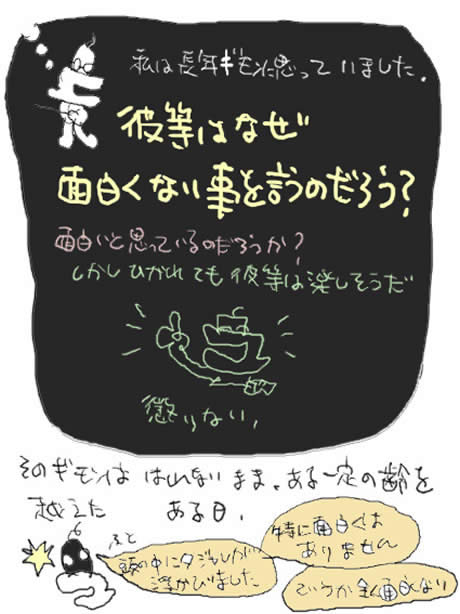 私は長年ギモンに思っていました。
彼等はなぜ
面白くない事を言うのだろう?
面白いと思っているのだろうか?
しかしひかれても彼等は楽しそうだ
懲りない。
そのギモンははれないまま、ある一定の齢を
越えた ある日、
ふと
頭の中にダジャレが
浮かびました
特に面白くは
ありません
というか全く面白くない